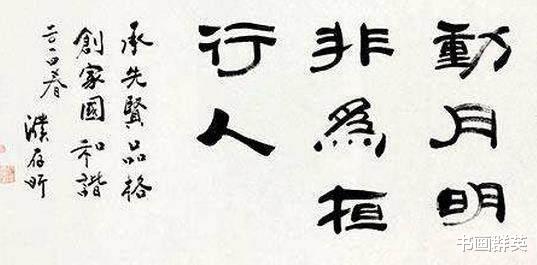 動月明
非為桓
行人
承先賢品格
創家國和諧
二〇一四春 濮存昕
书画群英